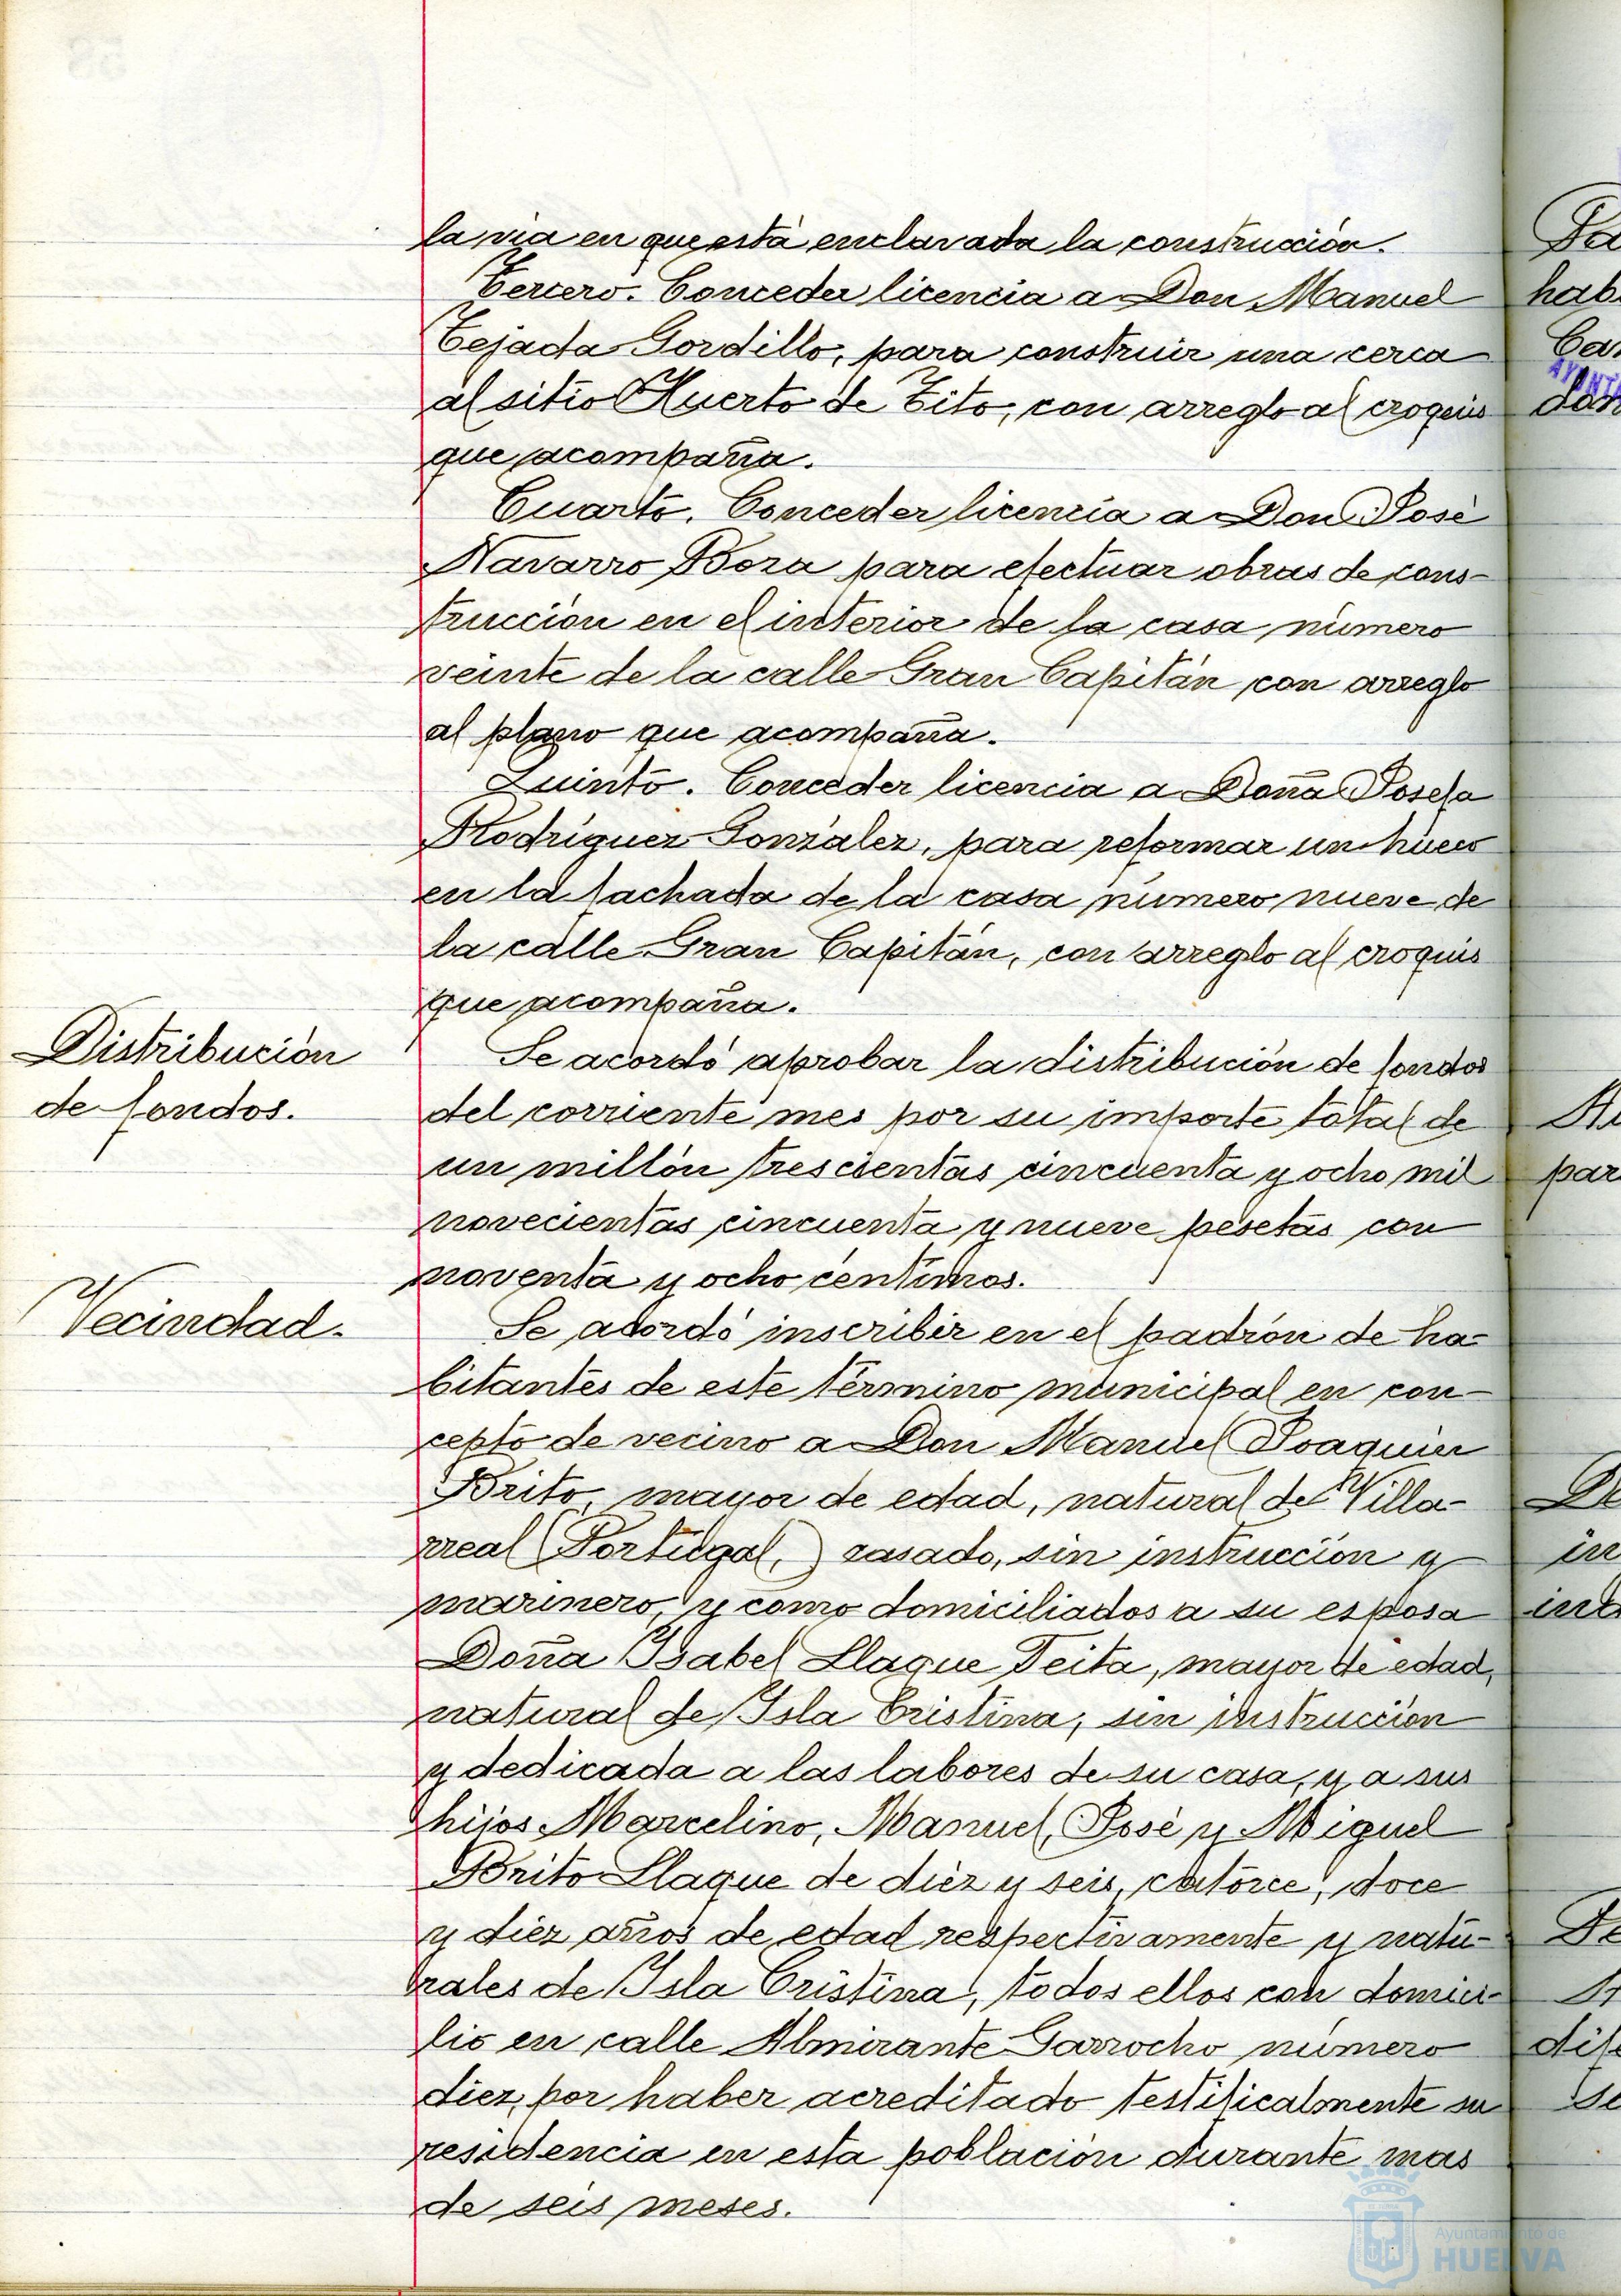 la via en que está enclavada la construcción.
Tercero. Conceder licencia a Don Manuel
Tejada Gordillo, para construir una cerca
al sitio Huerto de Tito, con arreglo al croquis
que acompaña.
Cuarto. Conceder licencia a Don José
Navarro Boza para efectuar obras de cons-
trucción en el interior de la casa número
veinte de la calle Gran Capitán con arreglo
al plano que acompaña.
Quinto. Conceder licencia a Doña Josefa
Rodríguez González, para reformar un hueco
en la fachada de la casa número nueve de
la calle Gran Capitán, con arreglo al croquis
que acompaña.
Distribución
de fondos.
Se acordó aprobar la distribución de fondos
del corriente mes por su importe total de
un millón trescientas cincuenta y ocho mil
novecientas cincuenta y nueve pesetas con
noventa y ocho centimos.
Vecindad.
Se acordó inscribir en el padrón de ha-
bitantes de este término municipal en con-
cepto de vecino a Don Manuel Joaquin
Brito, mayor de edad, natural de Villa-
rreal (Portugal,) casado, sin instrucción y
marinero, y como domiciliados a su esposa
Doña Isabel Llaque Feita, mayor de edad,
natural de Isla Cristina, sin instrucción
y dedicada a las labores de su casa, y a sus
hijos Marcelino, Manuel, José y Miguel
Brito Llaque de diez y seis, catorce, doce
y diez años de edad respectivamente y natu-
rales de Isla Cristina, todos ellos con domici-
lio en calle Almirante Garrocho número
diez, por haber acreditado testificalmente su
residencia en esta población durante mas
de seis meses.
hab
par
in
Ayuntamiento de
HUELVA